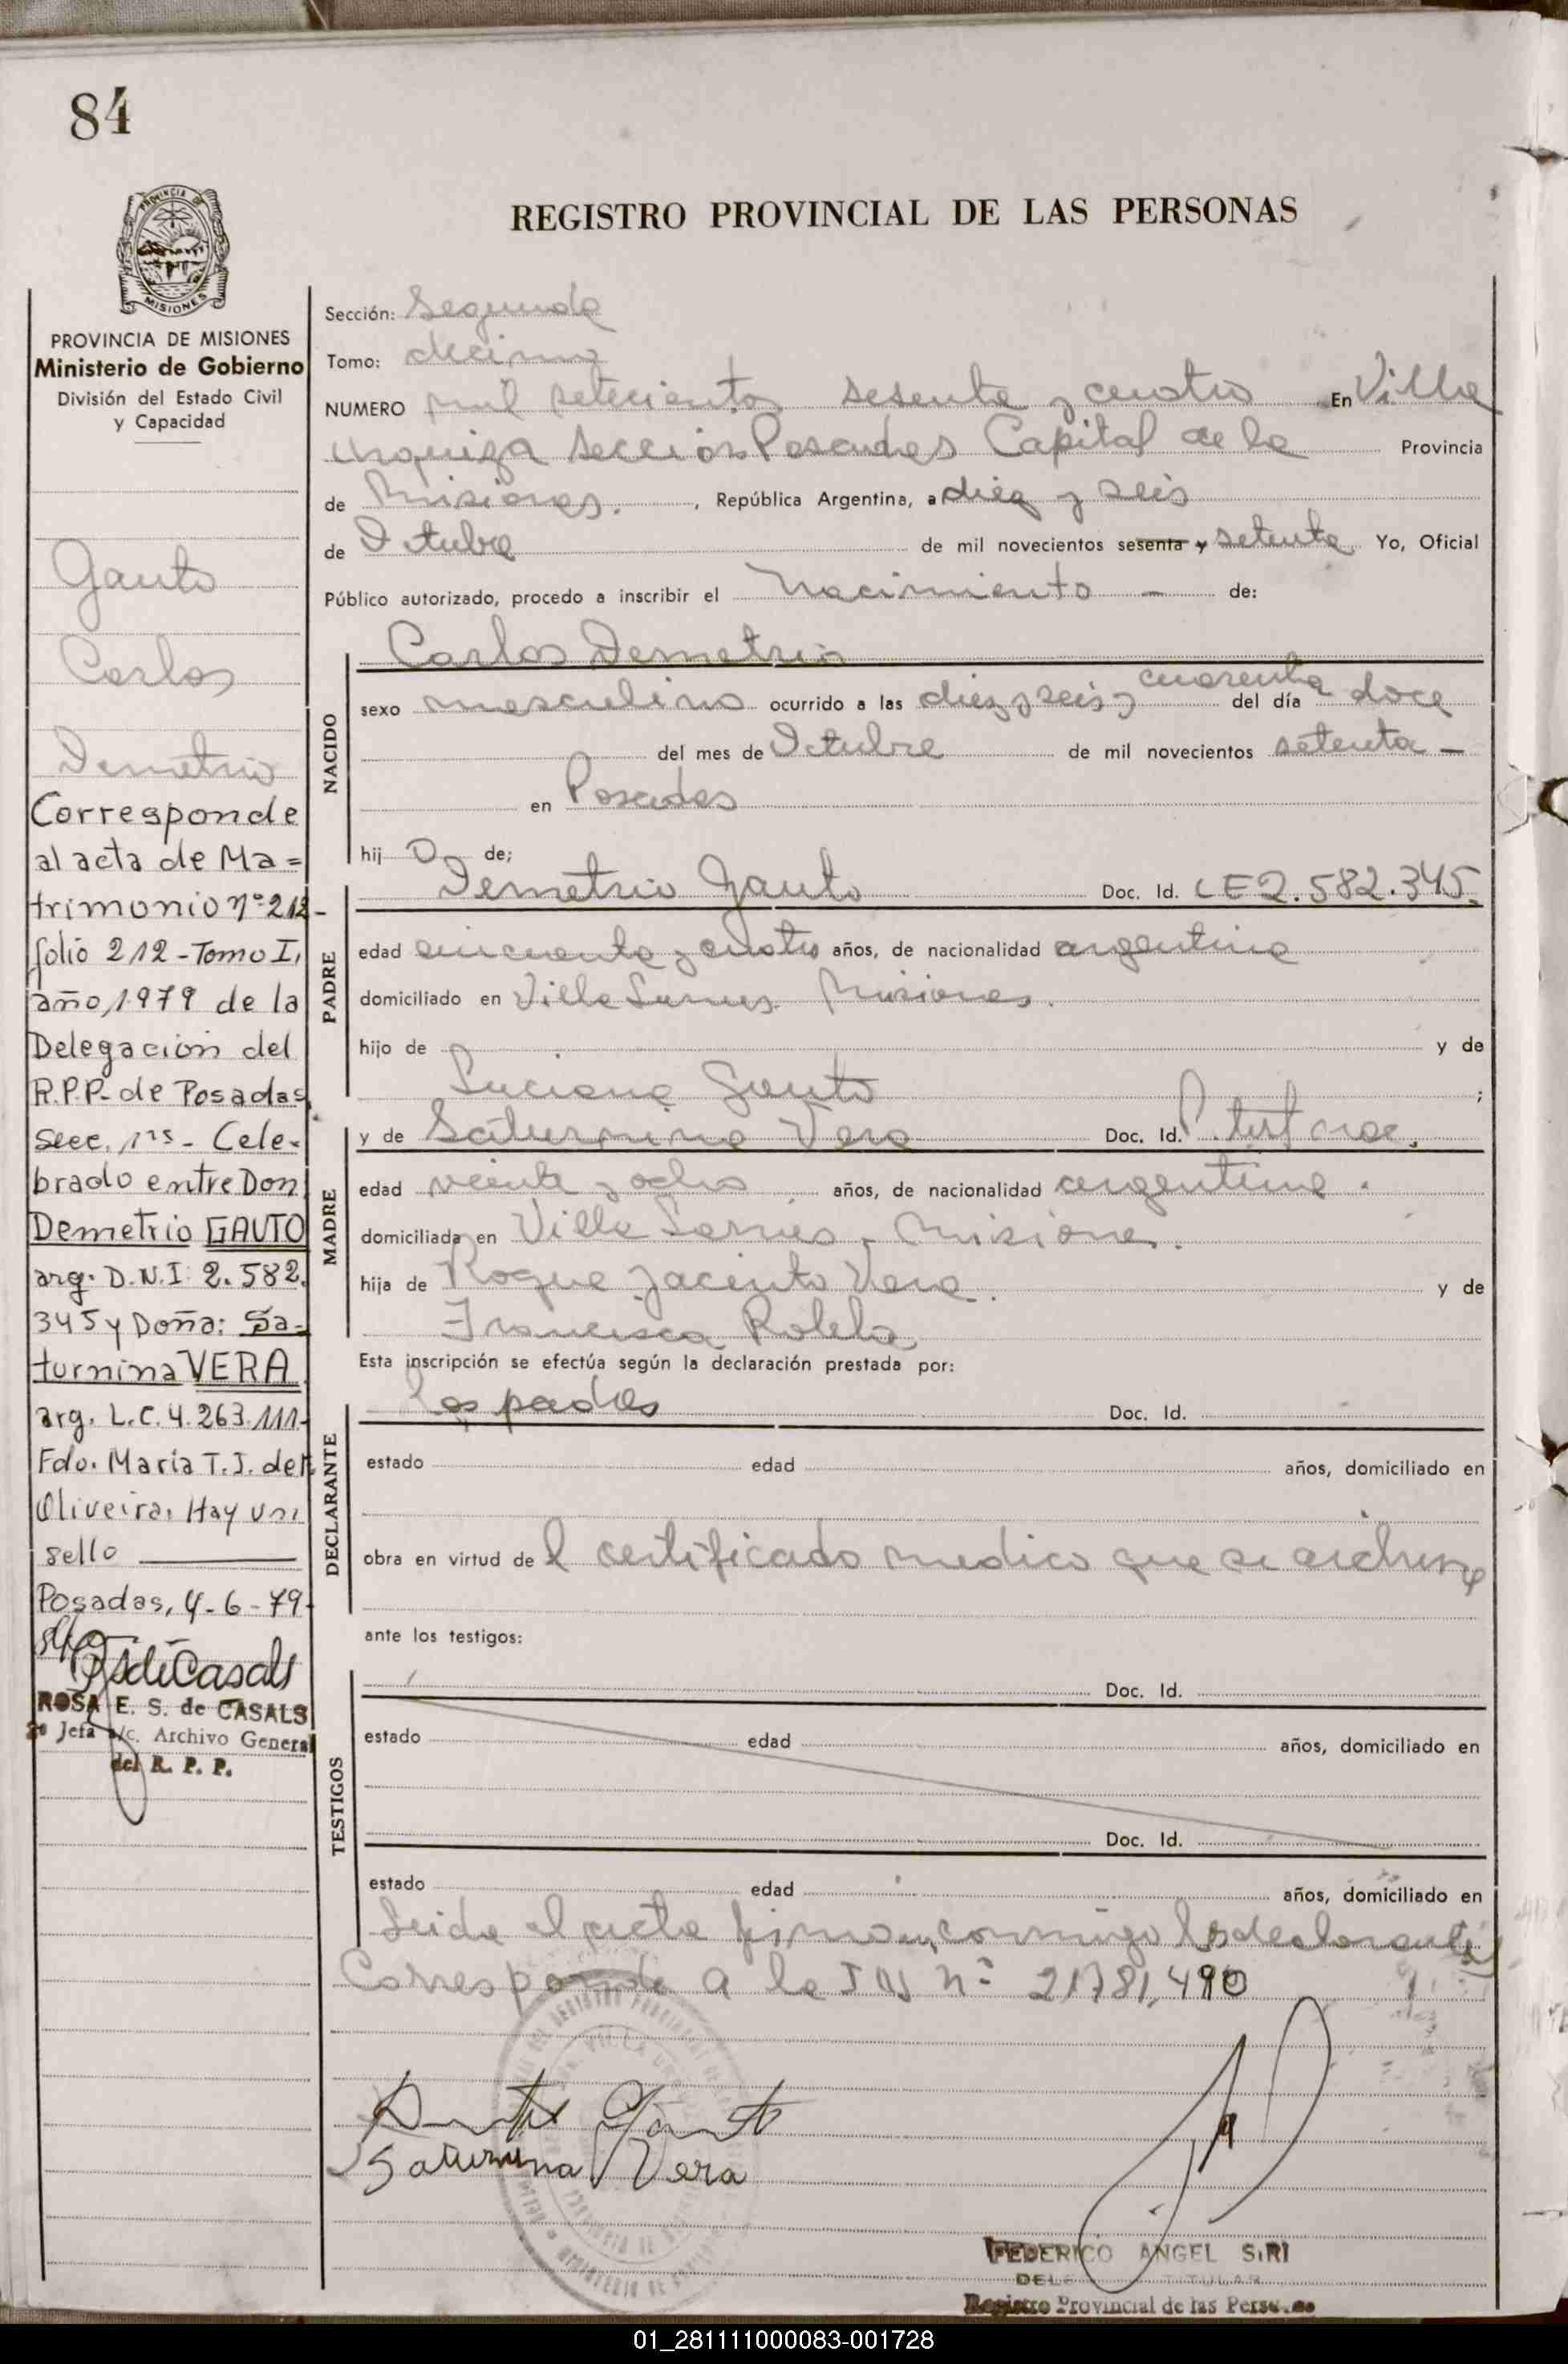 84
PROVINCIA DE
MISIONES
PROVINCIA DE MISIONES
Ministerio de Gobierno
División del Estado Civil
y Capacidad
Gauto
Carlos
Demetrio
Corresponde
al acta de Ma=
trimonio nº 212-
folio 212-Tomo I,
año, 1979 de la
Delegación del
R.P.P. de Posadas
Secc. 1ra - Cele-
brado entre Don
Demetrio GAUTO
arg. D.N.I 2.582.
345 y Doña: Sa-
turnina VERA
arg. L.C. 4.263.111-
Fdo. Maria T.J. de
Oliveira, Hay un
sello
Posadas, 4-6-79-
ROSA E. S. de CASALS
2º Jefa a/c. Archivo General
del R. P. P.
REGISTRO PROVINCIAL DE LAS PERSONAS
Sección: Segunda
Tomo: decimo
NUMERO mil setecientos sesenta y cuatro En Villa
Urquiza Sección Posadas Capital de la Provincia
de Misiones. , República Argentina, a diez y seis
de Octubre de mil novecientos sesenta y setenta Yo, Oficial
Público autorizado, procedo a inscribir el Nacimiento - de:
NACIDO
Carlos Demetrio
sexo masculino ocurrido a las diez y seis y cuarenta del día doce
del mes de Octubre de mil novecientos setenta -
en Posadas
hij o de;
PADRE
Demetrio Gauto Doc. Id. LE 2.582.345.
edad cincuenta y cuatro años, de nacionalidad argentina
domiciliado en Villa Misiones.
hijo de y de
Luciana Gauto ;
MADRE
y de Saturnina Vera Doc. Id.
edad veinte y ocho años, de nacionalidad argentina.
domiciliada en Villa - Misiones.
hija de Roque Jacinto Vera. y de
Francisca
Esta inscripción se efectúa según la declaración prestada por:
DECLARANTE
los padres Doc. Id.
estado edad años, domiciliado en
obra en virtud de l certificado medico que se archiva
ante los testigos:
TESTIGOS
Doc. Id.
estado edad años, domiciliado en
Doc. Id.
estado edad años, domiciliado en
Leida el acta firman conmigo los declarantes
Corresponde a la nº 21781,490
Gauto
Saturnina Vera
FEDERICO ANGEL SIRI
TITULAR
Registro Provincial de las Personas
01_281111000083-001728